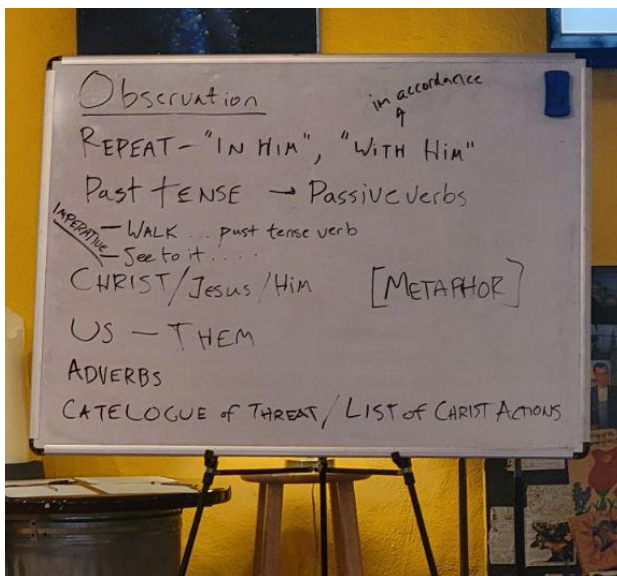 Observation
in accordance
REPEAT - "IN HIM", "WITH HIM"
Past TENSE → Passive verbs
IMPERATIVE
- WALK ... past tense verb
- See to it ....
CHRIST/Jesus/Him [METAPHOR]
US - THEM
ADVERBS
CATELOGUE of THREAT/LIST of CHRIST ACTIONS